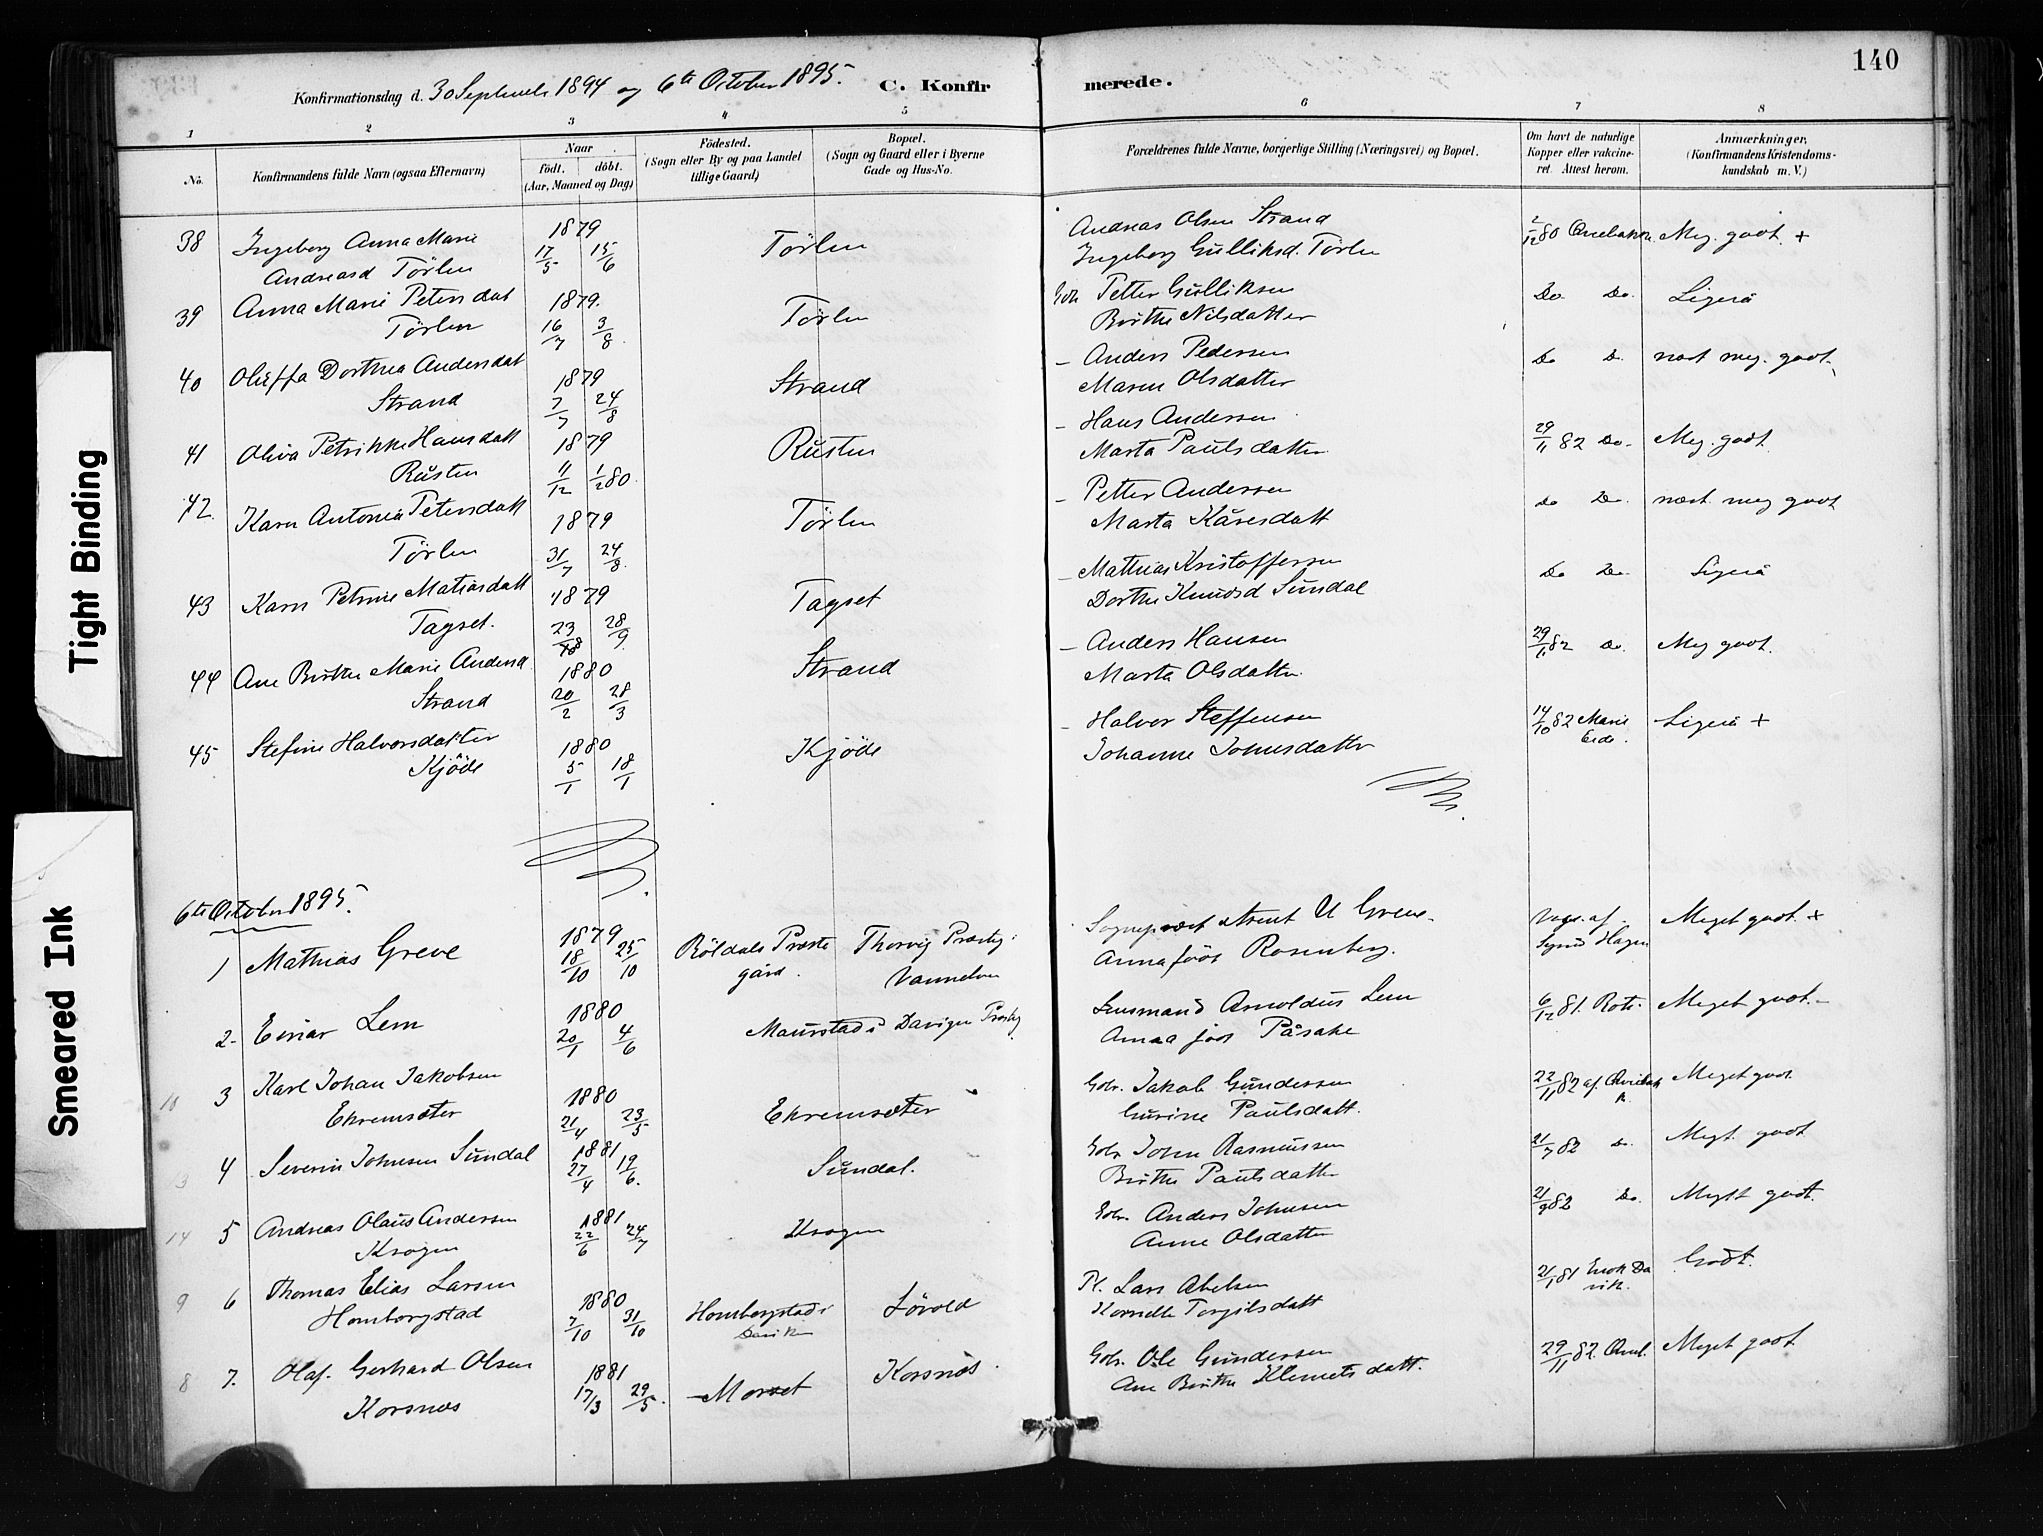 140
Konfirmationsdag d. 30 September 1894 og 6te October 1895. C. Konfirmerede.
1 2 3 4 5 6 7 8
No.
Konfirmandens fulde Navn (ogsaa Efternavn)
Naar
født. døbt.
(Aar, Maaned og Dag)
Fødested.
(Sogn eller By og paa Landet
tillige Gaard)
Bopæl.
(Sogn og Gaard eller i Byerne
Gade og Hus-No.
Forældrenes fulde Navne, borgerlige Stilling (Næringsvei) og Bopæl.
Om havt de naturlige
Kopper eller vakcine-
ret. Attest herom.
Anmærkninger,
(Konfirmandens Kristendoms-
kundskab m. V.)
38 Ingeborg Anna Marie 1879 Tørlen Andreas Olsen Strand
Andreasd Tørlen 17/5 15/6 Ingeborg Gulliksd. Tørlen Meg. godt. +
39 Anna Marie Petersdat 1879. Tørlen Petter Gulliksen Do Do. Ligeså
Tørlen 16/7 3/8 Birthe Nilsdatter
40 Oleffa Dorthea Andersdat 1879 Strand - Anders Pedersen Do D. næst meg. godt.
Strand 7/7 24/8 Maren Olsdatter
41 Oliva Petrikke Hansdatt 1879 Rusten - Hans Andersen 29/11 82 Do. Meg. godt.
Rusten 11/12 1/2 80. Marta Paulsdatter
42. Karen Antonia Petersdatt 1879 Tørlen - Petter Andersen Do Do. næst meg godt
Tørlen 31/7 24/8. Marta Kåresdatt
43 Karen Petrine Matiasdatt 1879 Tagset - Mathias Kristoffersen Do Do Ligeså
Tagset. 23/8 28/9. Dorthe Knudsd Sundal
44 Ane Birthe Marie Andersd. 1880 Strand - Anders Hansen 29/11 82 Do. Meg godt.
Strand 20/2 28/3 Marta Olsdatter
45 Stefine Halvorsdatter 1880 Kjøde - Halvor Steffensen 14/10 82 Marie Eide. Ligeså +
Kjøde 5/1 18/1 Johanne Johnsdatter
6te October 1895.
1 Mathias Greve 1879 Røldals Præste Thorvig Præstg: Sognepræst Arent U Greve. Vacc. af Meget godt. +
18/10 25/10 gård. Vannelven Anna født Rosenberg. Hagen
2. Einar Lem 1880 Maurstad i Davigen Præstg Lensmand Arnoldus Lem 6/12 81. Meget godt.
20/1 4/6 Anna født
10 3 Karl Johan Jakobsen 1880 Ekremsæter Gbr. Jakob Gundersen 22/11 82 af Meget godt
Ekremsæter 21/4 23/5 Gurine Paulsdatt.
3 4 Severin Johnsen Sundal 1881 Sundal. Gbr John Rasmussen 21/7 82 D. Meget. godt
27/4 19/6. Birthe Paulsdatter
14 5 Andreas Olaus Andersen 1881 Krogen Gbr. Anders Johnsen 21/9 82 Do. Meget godt.
Krogen 22/6 24/7 Anne Olsdatter
9 6 Thomas Elias Larsen 1880 Homborgstad i Løvold Pl. Lars Abelsen 21/1 81 Godt.
Homborgstad 7/10 31/10 Davik Kornelie Torgilsdatt
8 7. Olaf. Gerhard Olsen 1881 Morset Korsnæs Gbr. Ole Gundersen 29/11 82. Meget godt.
Korsnæs 17/3 29/5. Ane Birthe Klemetsdatt.
Tight Binding
Smeared Ink